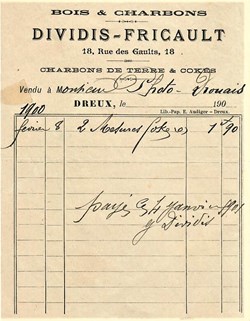 BOIS & CHARBONS
DIVIDIS-FRICAULT
18, Rue des Gaults, 18
CHARBONS DE TERRE & COKES
Vendu à Monsieur Photo-Drouais
1900 DREUX, le 190
Lib.-Pap. E. Audiger - Dreux.
février 8 2 Mesures Coke 1 90
payé le 4 janvier 1901
g Dividis